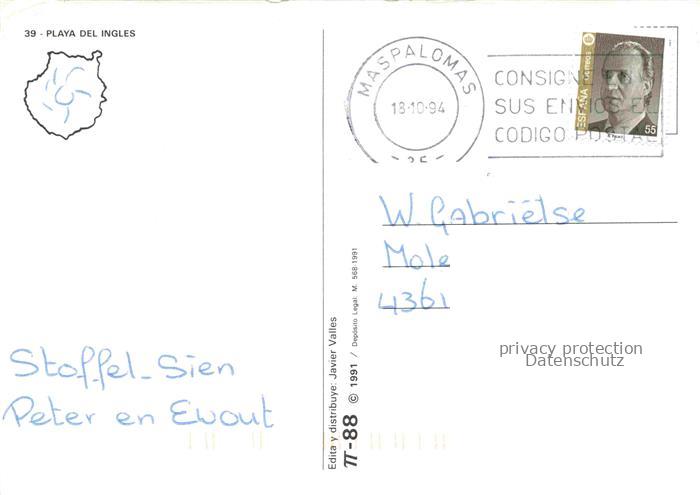 39 - PLAYA DEL INGLES
MASPALOMAS
18·10·94
CONSIGNE
SUS ENVIOS EL
CODIGO POSTAL
ESPAÑA
55
W. Gabriëlse
Mole
4361
privacy protection
Datenschutz
Stoffel - Sien
Peter en Ewout
Edita y distribuye: Javier Valles
π-88 © 1991 / Depósito Legal: M. 568-1991